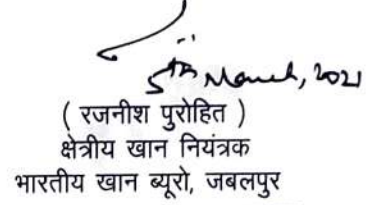 5th March, 2021
( रजनीश पुरोहित )
क्षेत्रीय खान नियंत्रक
भारतीय खान ब्यूरो, जबलपुर